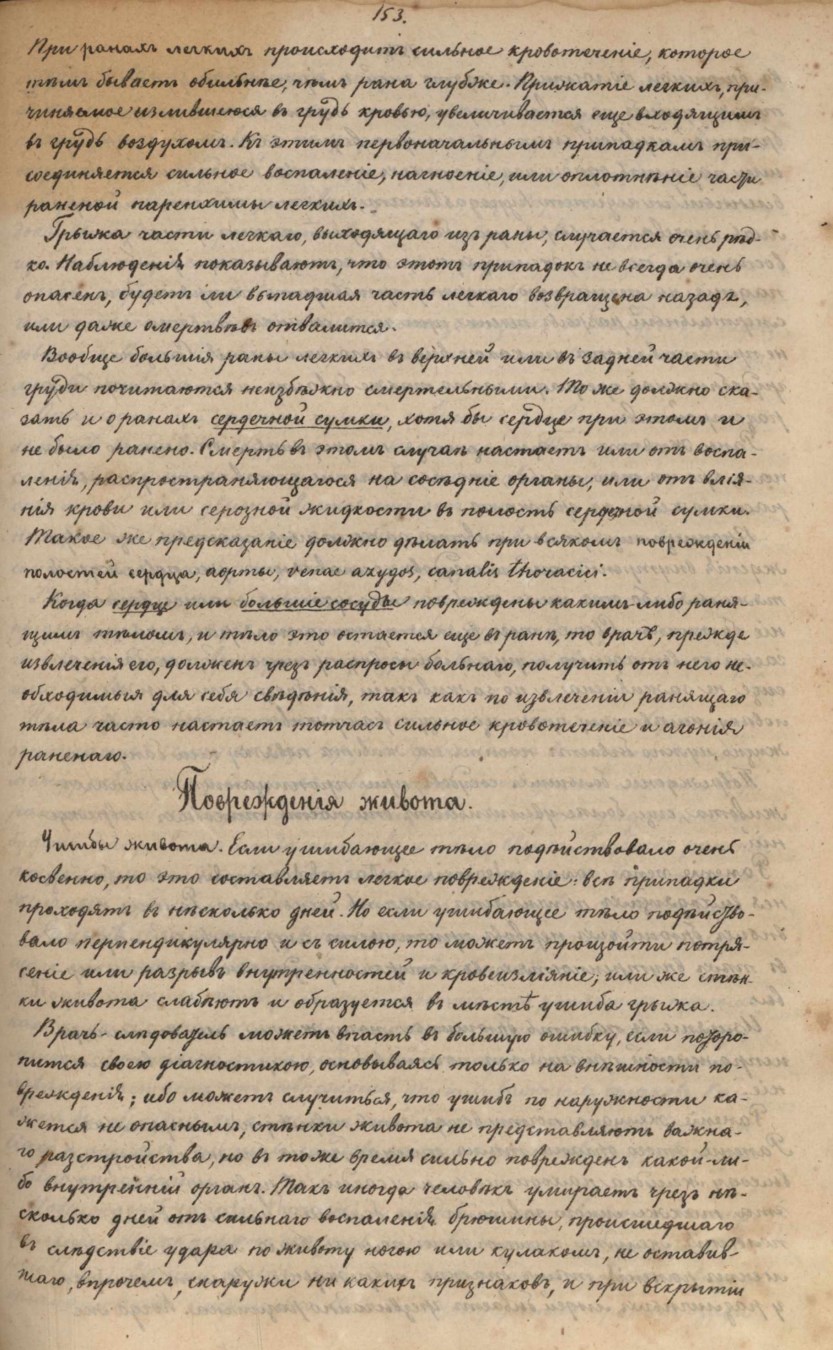 153.
При ранахъ легкихъ происходитъ сильное кровотеченіе, которое
тѣмъ бываетъ обильнѣе, чѣмъ рана глубже. Прижатіе легкихъ, при-
чиняемое излившеюся въ грудь кровью, увеличивается еще входящимъ
въ грудь воздухомъ. Къ этимъ первоначальнымъ припадкамъ при-
соединяется сильное воспаленіе, нагноеніе, или оплотнѣніе части
раненой паренхимы легкихъ.
Грыжа части легкаго, выходящаго изъ раны, случается очень рѣд-
ко. Наблюденія показываютъ, что этотъ припадокъ не всегда очень
опасенъ, будетъ ли выпадшая часть легкаго возвращена назадъ,
или даже омертвѣвъ отвалится.
Вообще большія раны легкихъ въ верхней или въ задней части
груди почитаются неизбѣжно смертельными. То же должно ска-
зать и о ранахъ сердечной сумки, хотя бы сердце при этомъ и
не было ранено. Смерть въ этомъ случаѣ настаетъ или отъ воспа-
ленія, распространяющагося на сосѣдніе органы, или отъ влія-
нія крови или серозной жидкости въ полость сердечной сумки.
Такое же предсказаніе должно дѣлать при всякомъ поврежденіи
полостей сердца, аорты, venae azygos, canalis thoracici.
Когда сердце или большіе сосуды повреждены какимъ-либо раня-
щимъ тѣломъ, и тѣло это остается еще въ ранѣ, то врачъ, прежде
извлеченія его, долженъ чрезъ распросы больнаго, получить отъ него не-
обходимыя для себя свѣдѣнія, такъ какъ по извлеченіи ранящаго
тѣла часто настаетъ тотчасъ сильное кровотеченіе и агонія
раненаго.
Поврежденія живота.
Ушибы живота. Если ушибающее тѣло подѣйствовало очень
косвенно, то это составляетъ легкое поврежденіе: всѣ припадки
проходятъ въ нѣсколько дней. Но если ушибающее тѣло подѣйство-
вало перпендикулярно и съ силою, то можетъ произойти потря-
сеніе или разрывъ внутренностей и кровеизліяніе; или же стѣн-
ки живота слабѣютъ и образуется въ мѣстѣ ушиба грыжа.
Врачъ-слѣдователь можетъ впасть въ большую ошибку, если поторо-
пится своею діагностикою, основываясь только на внѣшности по-
врежденія; ибо можетъ случиться, что ушибъ по наружности ка-
жется не опаснымъ, стѣнки живота не представляютъ важна-
го разстройства, но въ тоже время сильно поврежденъ какой-ли-
бо внутренній органъ. Такъ иногда человѣкъ умираетъ чрезъ нѣ-
сколько дней отъ сильнаго воспаленія брюшины, происшедшаго
въ слѣдствіе удара по животу ногою или кулакомъ, не оставив-
шаго, впрочемъ, снаружи ни какихъ признаковъ, и при вскрытіи